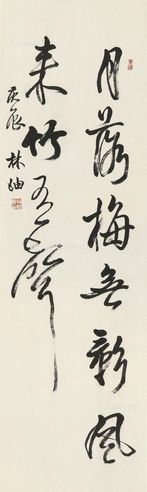 月落梅無影風
來竹有聲
庚辰 林岫